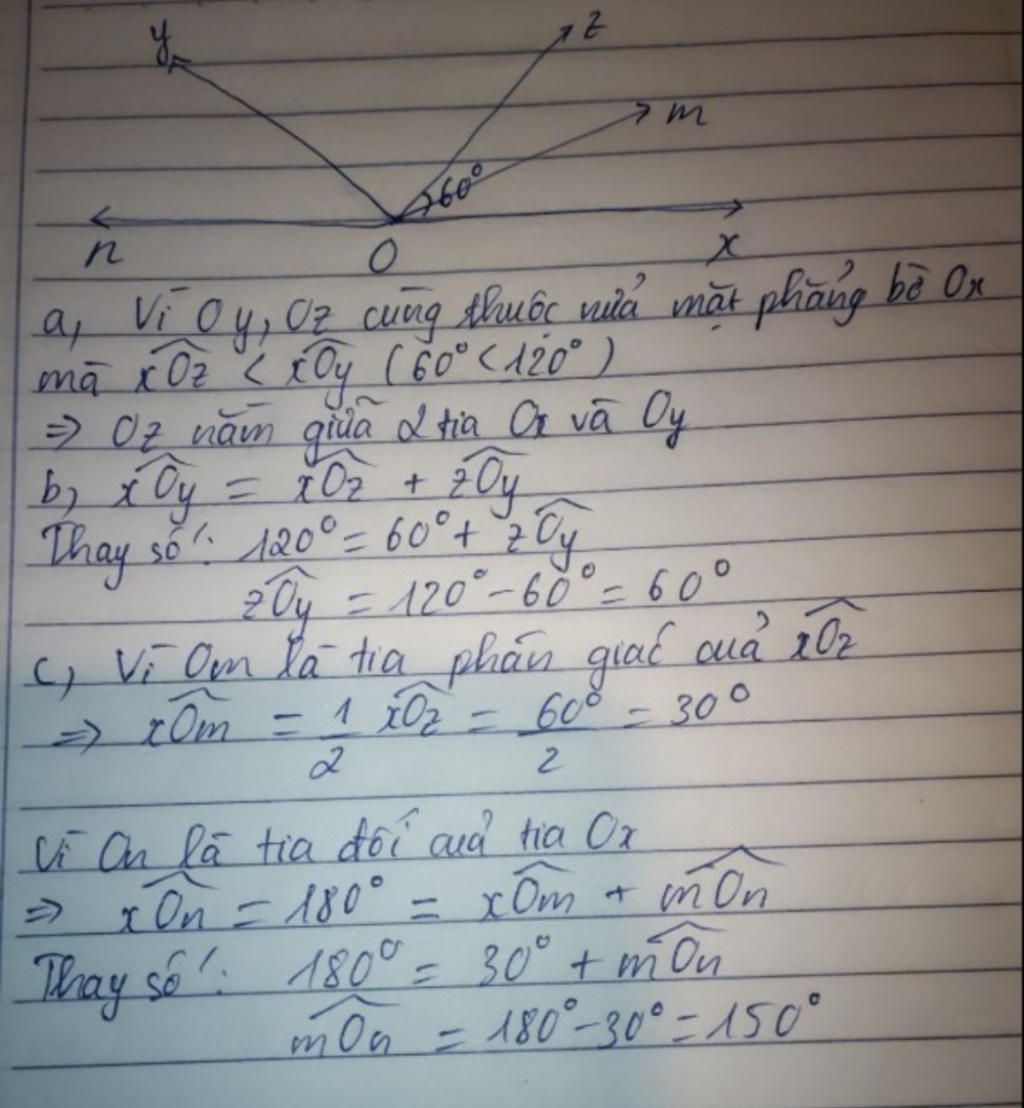 y
z
m
60°
n
O
x
a, Vì Oy, Oz cùng thuộc nửa mặt phẳng bờ Ox
mà xÔz < xÔy (60° < 120°)
=> Oz nằm giữa 2 tia Ox và Oy
b, xÔy = xÔz + zÔy
Thay số: 120° = 60° + zÔy
zÔy = 120° - 60° = 60°
c, Vì Om là tia phân giác của xÔz
=> xÔm = 1/2 xÔz = 60°/2 = 30°
Vì On là tia đối của tia Ox
=> xÔn = 180° = xÔm + mÔn
Thay số: 180° = 30° + mÔn
mÔn = 180° - 30° = 150°